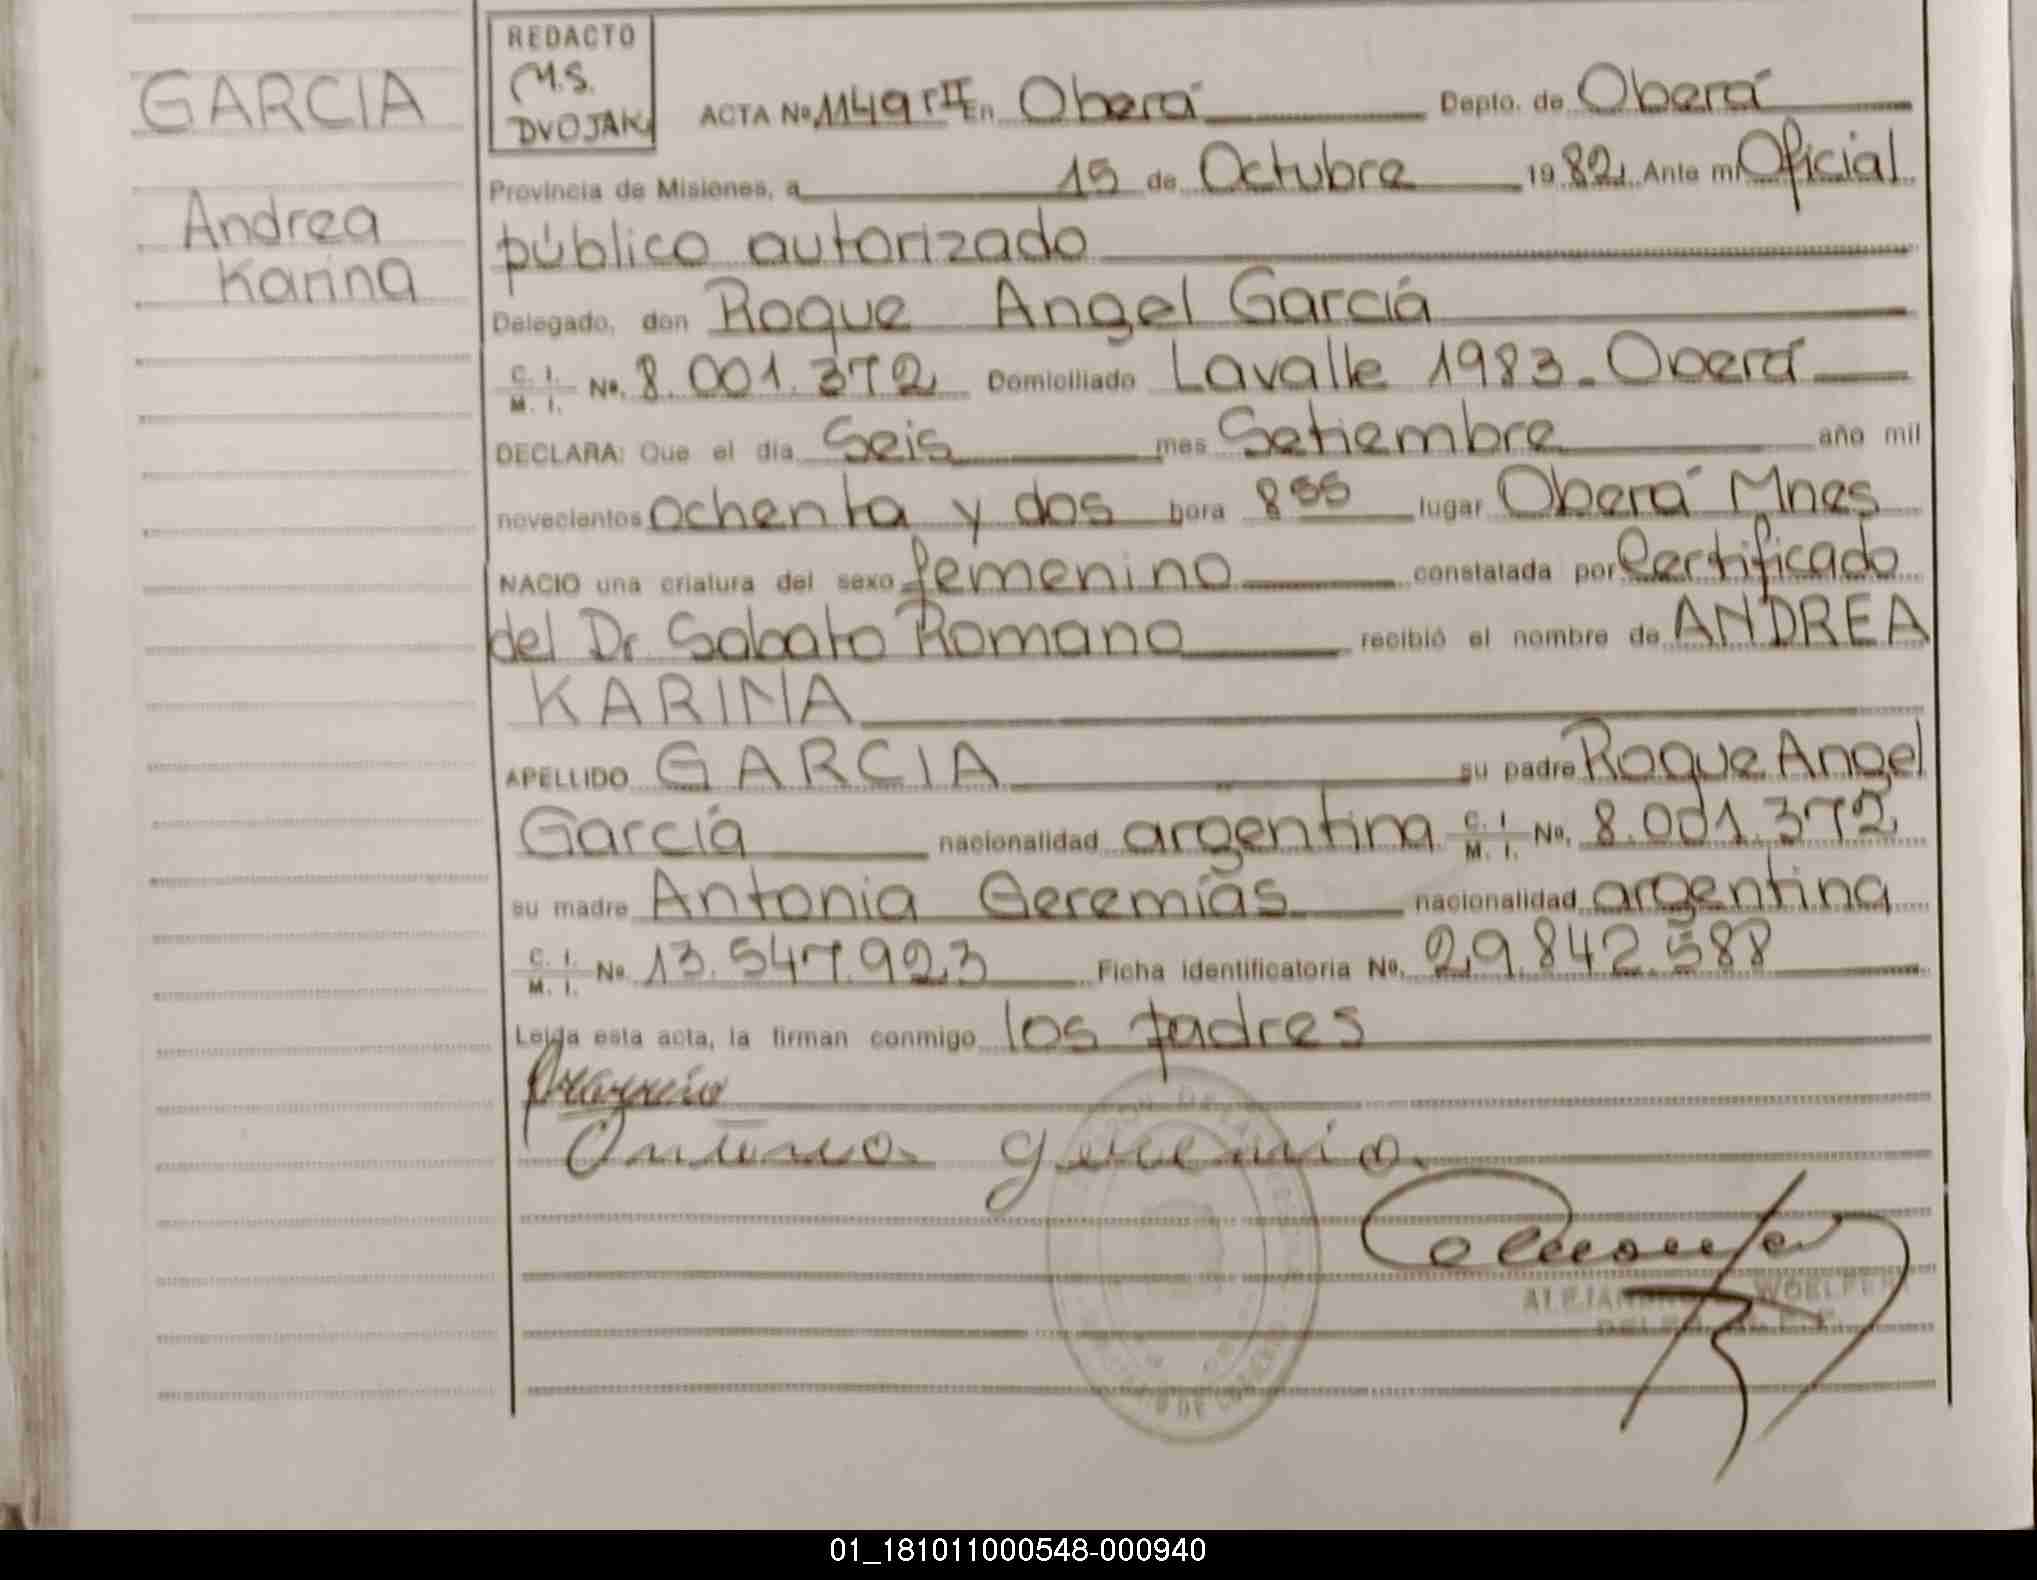 GARCIA
Andrea
Karina
REDACTO
M.S.
DVOJAK
ACTA No 1149 rII En Oberá Depto. de Oberá
Provincia de Misiones, a 15 de Octubre 1982 Ante mi Oficial
público autorizado
Delegado, don Roque Angel García
C. I. M. I. No. 8.001.372 Domiciliado Lavalle 1983 - Oberá
DECLARA: Que el día Seis mes Setiembre año mil
novecientos ochenta y dos hora 8 55 lugar Oberá Mnes
NACIO una criatura del sexo femenino constatada por Certificado
del Dr. Sabato Romano recibió el nombre de ANDREA
KARINA
APELLIDO GARCIA su padre Roque Angel
García nacionalidad argentina C. I. M. I. No. 8.001.372
su madre Antonia Geremías nacionalidad argentina
C. I. M. I. No 13.547.923 Ficha identificatoria No. 29.842.588
Leída esta acta, la firman conmigo los padres
Antonia Geremia
WOELFERT
01_181011000548-000940